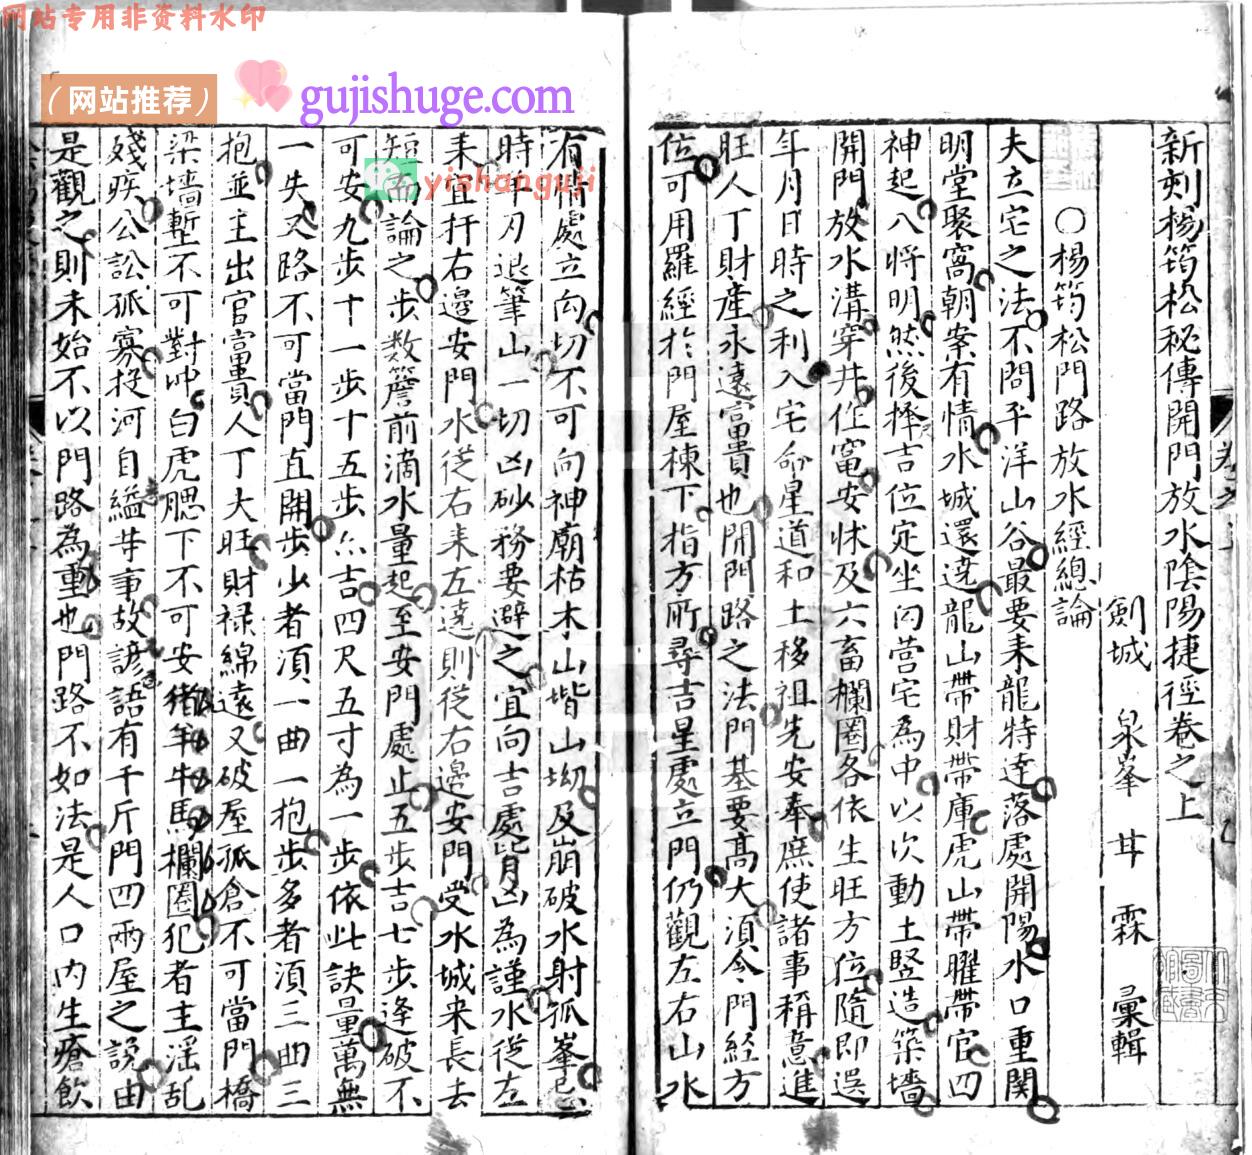 网站专用非资料水印
（网站推荐）
gujishuge.com
yishanguji
新刻楊筠松秘傳開門放水陰陽捷徑卷之上
劍城 泉峯 甘 霖 彙輯
○楊筠松門路放水經總論
夫立宅之法不問平洋山谷最要来龍特逹落處開陽水口重関
明堂聚窩朝案有情水城還遶龍山帶財帶庫虎山帶曜帶官四
神起八將明然後擇吉位定坐向营宅為中以次動土竪造築墻
開門放水溝穿井作窗安床及六畜欄圈各依生旺方位隨即選
年月日時之利入宅命星道和土移祖先安奉庶使諸事稱意進
旺人丁財産永遠富貴也開門路之法門基要高大湏令門経方
位可用羅經扵門屋棟下指方所尋吉星處立門仍觀左右山水
有情處立向切不可向神廟枯木山嘴山坳及崩破水射孤峯忌
時年刃退筆山一切凶砂務要避之宜向吉處凶為謹水從左
来宜扦右邊安門水從右来左遶則從右邊安門受水城来長去
短而論之步数簷前滴水量起至安門處止五步吉七步逢破不
可安九步十一步十五步亦吉四尺五寸為一步依此訣量萬無
一失又路不可當門直開步少者湏一曲一抱步多者湏三曲三
抱並主出官富貴人丁大旺財禄綿遠又破屋孤倉不可當門橋
梁墻塹不可對冲白虎腮下不可安猪羊牛馬欄圈犯者主淫乱
殘疾公訟孤寡投河自縊等事故諺語有千斤門四兩屋之說由
是觀之則未始不以門路為重也門路不如法是人口内生瘡飲